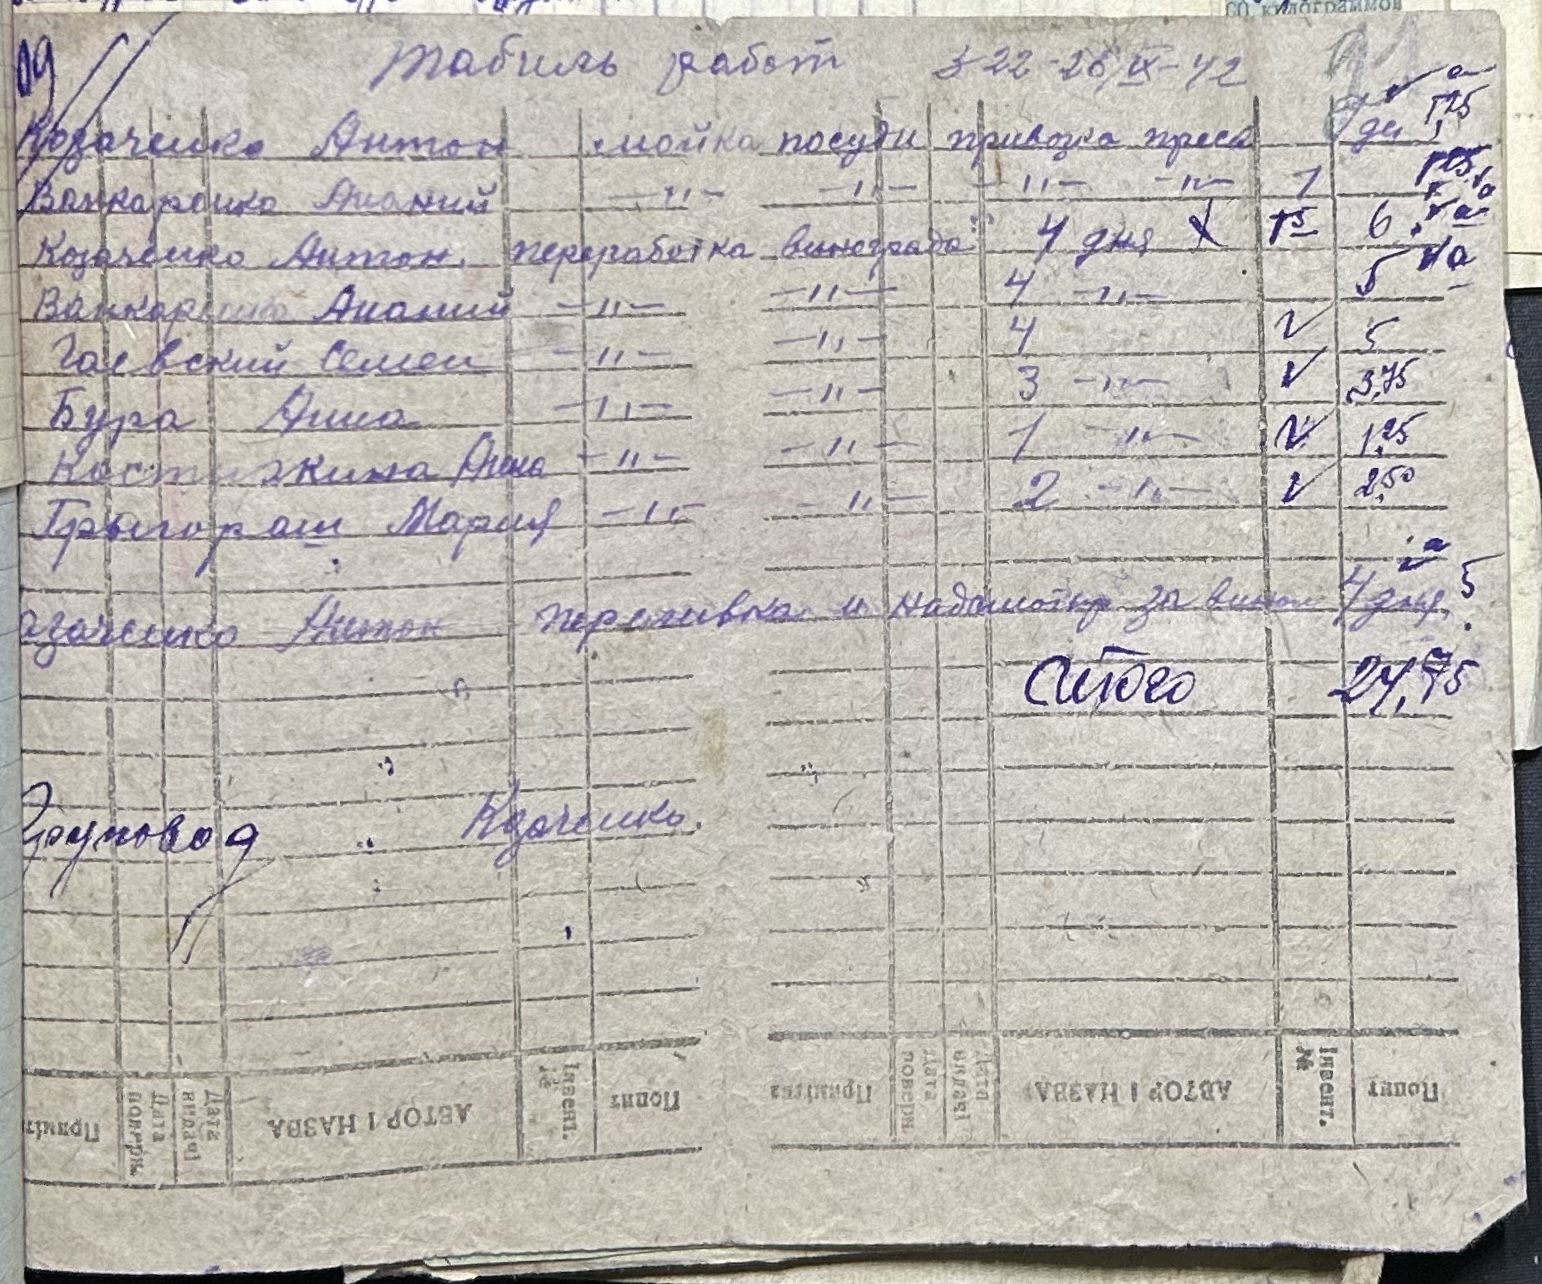 со килограммов
09
Табиль работ з 22-26/IX-42
Козаченко Антон мойка посуды привозка преса 1 де 1,25
Ванкаренко Ананий —"— —"— —"— —"— 1
Козаченко Антон. переработка винограда 4 дня X 6
Ванкаренко Ананий —"— —"— 4 —"— 5
Гаевский Семен —"— —"— 4 ✓ 5
Бура Анна —"— —"— 3 —"— ✓ 3,75
Костюжкина Анна —"— —"— 1 —"— ✓ 1,25
Грыгораш Мария —"— —"— 2 —"— ✓ 2,50
азаченко Антон переливка и надсмотр за вином 4 дня 5
Итого 24,75
Груповод Козаченко.
Приміт Дата поверн. Дата видачі АВТОР І НАЗВА Інвент. № Попит
Примітка Дата поверн. Дата видачі АВТОР І НАЗВА Інвент. № Попит